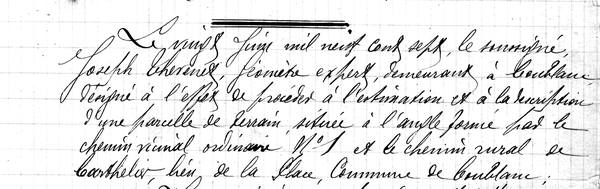 Le vingt Juin mil neuf cent sept, le soussigné,
Joseph Chevenet, Géomètre expert, demeurant à Coublanc,
désigné à l'effet de procéder à l'estimation et à la description
d'une parcelle de terrain, située à l'angle formé par le
chemin vicinal ordinaire N° 1 et le chemin rural de
lieu de la Place, Commune de Coublanc.